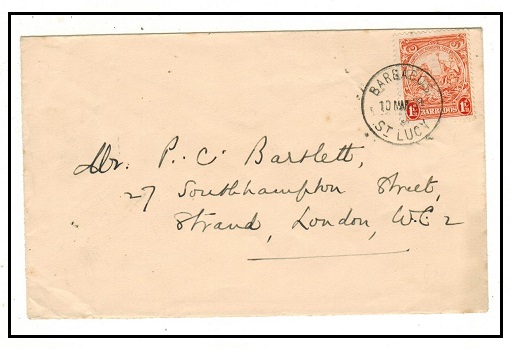 BARBADOS
10 MA
ST LUCY
1½ BARBADOS 1½
Mr. P. C. Bartlett,
27 Southhampton Street,
Strand, London, W.C 2